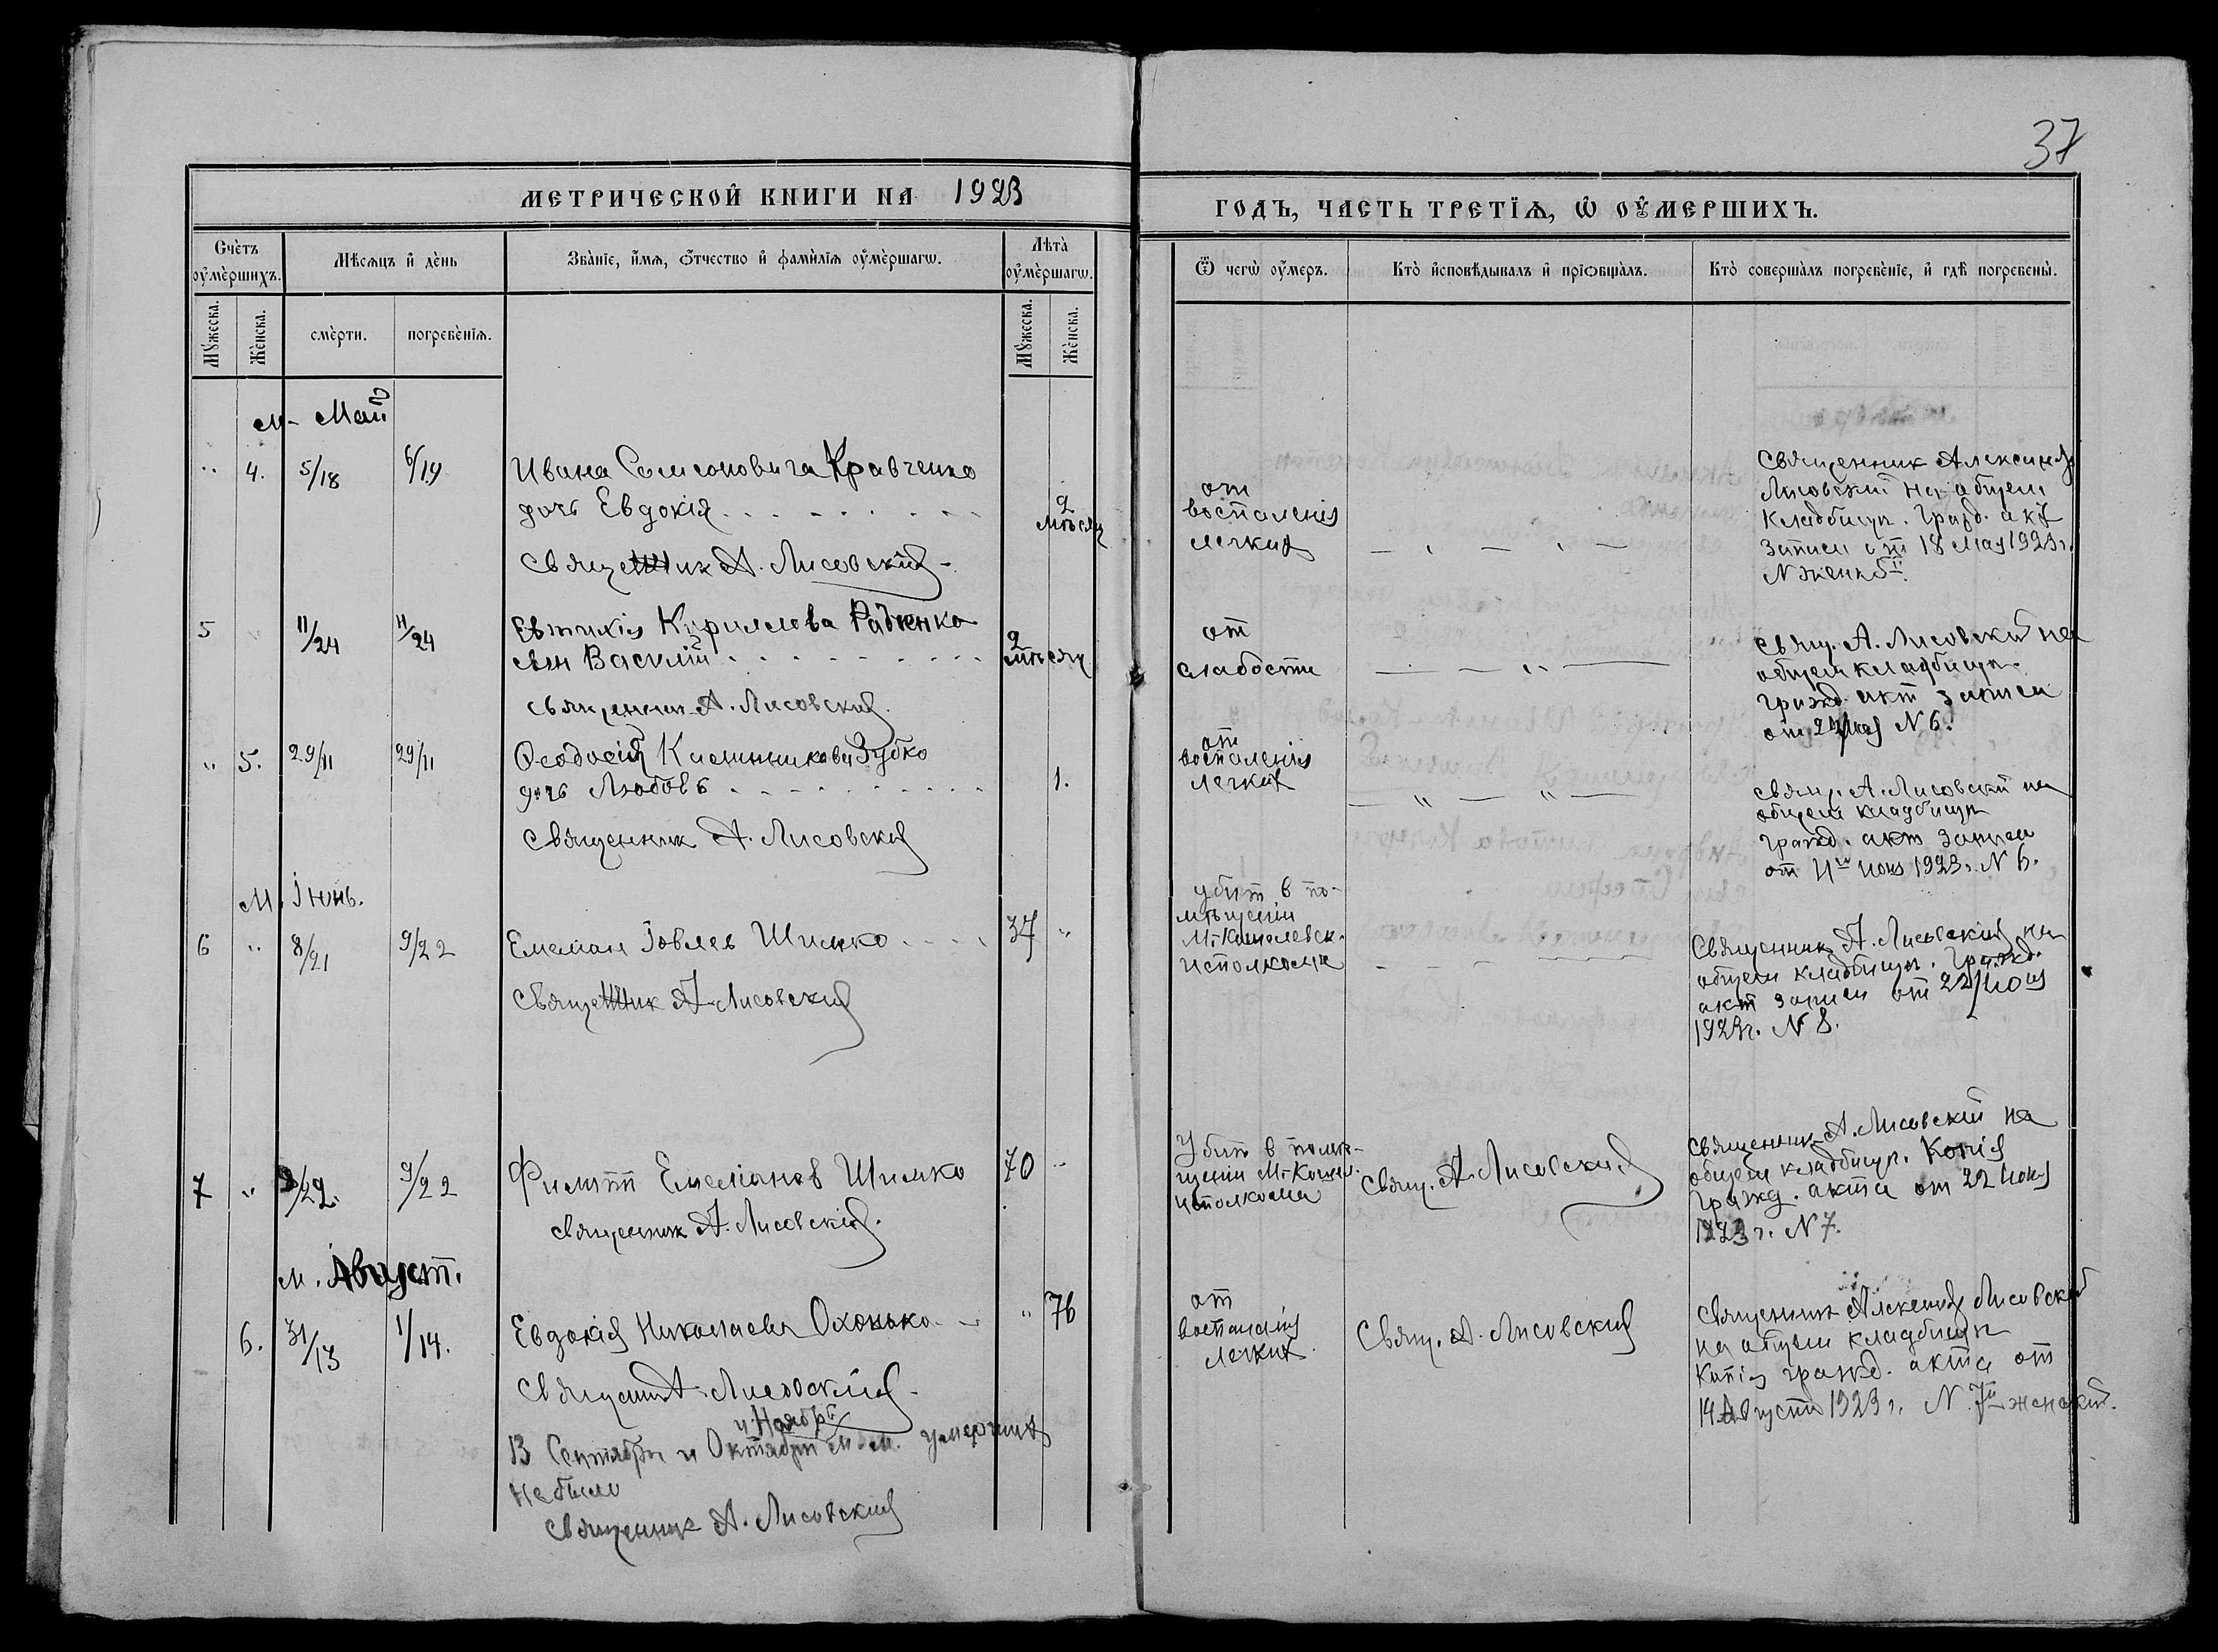 37
МЕТРИЧЕСКОЙ КНИГИ НА 1923
ГОДЪ, ЧАСТЬ ТРЕТІѦ, Ѡ ОУМЕРШИХЪ.
Счетъ оумершихъ.
Мѣсяцъ и день
Званіе, имя, Ѿчество и фамилія оумершагѡ.
Лѣта оумершагѡ.
Ѿ чегѡ оумеръ.
Кто исповѣдывалъ и пріѡбщалъ.
Кто совершалъ погребеніе, и гдѣ погребены.
Мужеска.
Женска.
смерти.
погребенія.
Мужеска.
Женска.
М- Май
" 4. 5/18 6/19 Ивана Самсоновича Кравченко
дочь Евдокія
2
мѣсяц
Священник А. Лисовский
от
воспаленія
легких
Священник Александр
Лисовский на общем
кладбищѣ. Гражд. акт
записи от 18 мая 1923 г.
5 " 11/24 11/24 Евтихія Кириллова Радченко
сын Василій
2
мѣсяц
Священник А. Лисовский
от
слабости
Свящ. А. Лисовский на
общем кладбищѣ.
Гражд. акт записи
от 24 мая N 6.
" 5. 29/11 29/11 Ѳеодосія Зубко
дочь Любовь 1.
Священник А. Лисовский
от
воспаленія
легких
Свящ. А. Лисовский на
общем кладбищѣ
Гражд. акт записи
от 11го июня 1923 г. N 6.
М. Іюнь.
6 " 8/21 9/22 Емелиан Іовлев Шимко 37 "
Священник А. Лисовский
убит в по-
мѣщеніи
М-Кошелевск.
исполкома
Священник А. Лисовский на
общем кладбищѣ. Гражд.
акт записи от 22 июня
1923 г. N 8.
7 " 9/22 9/22 Филипп Емеліанов Шимко 70 "
Священник А. Лисовский.
Убит в помѣ-
щеніи М-Кошел.
исполкома
Свящ. А. Лисовский
Священник А. Лисовский на
общем кладбищѣ. Копія
Гражд. акта от 22 июня
1923 г. N 7.
М. Август.
6. 31/13 1/14. Евдокія Николаева Охонько " 76
А. Лисовский
от
воспаленія
легких
Свящ. А. Лисовский
Священник Александр Лисовский
на общем кладбищѣ
Копія гражд. акта от
14 Августа 1923 г. N 7й женский.
и Ноябрѣ
В Сентябрѣ и Октябрѣ м.м. умерших
не было
Священник А. Лисовский